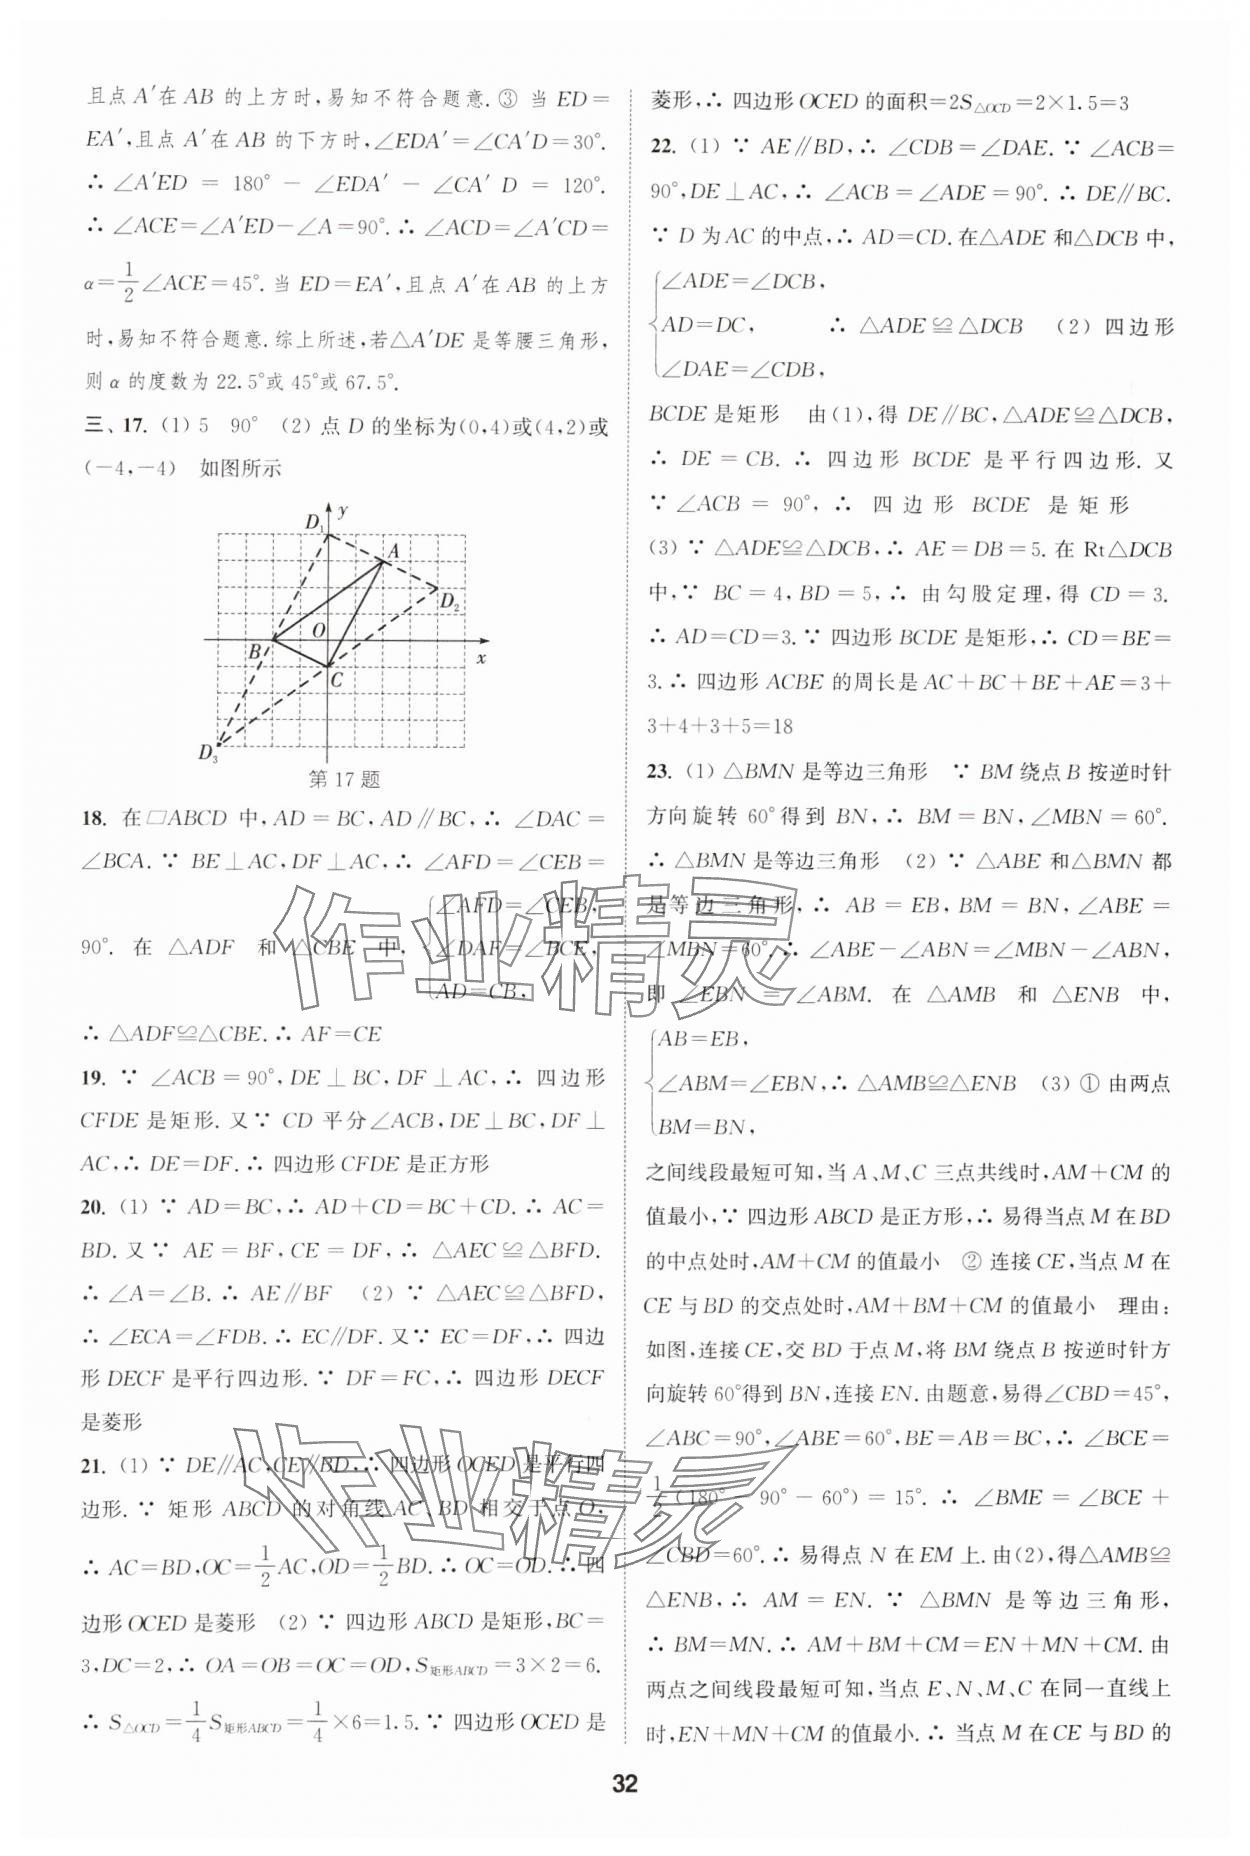 且点A′在AB的上方时,易知不符合题意.③ 当ED=
EA′,且点A′在AB的下方时,∠EDA′=∠CA′D=30°.
∴ ∠A′ED = 180° − ∠EDA′ − ∠CA′D = 120°.
∴ ∠ACE=∠A′ED−∠A=90°.∴ ∠ACD=∠A′CD=
α=1/2∠ACE=45°.当ED=EA′,且点A′在AB的上方
时,易知不符合题意.综上所述,若△A′DE是等腰三角形,
则α的度数为22.5°或45°或67.5°.
三、17. (1) 5 90° (2) 点D的坐标为(0,4)或(4,2)或
(−4,−4) 如图所示
D₁
y
A
D₂
O
B
x
C
D₃
第17题
18. 在▱ABCD中,AD=BC,AD∥BC,∴ ∠DAC=
∠BCA.∵ BE⊥AC,DF⊥AC,∴ ∠AFD=∠CEB=
90°. 在 △ADF 和 △CBE 中, {∠AFD=∠CEB,
∠DAF=∠BCE,
AD=CB,
∴ △ADF≌△CBE.∴ AF=CE
19. ∵ ∠ACB=90°,DE⊥BC,DF⊥AC,∴ 四边形
CFDE是矩形.又∵ CD平分∠ACB,DE⊥BC,DF⊥
AC,∴ DE=DF.∴ 四边形CFDE是正方形
20. (1) ∵ AD=BC,∴ AD+CD=BC+CD.∴ AC=
BD.又∵ AE=BF,CE=DF,∴ △AEC≌△BFD.
∴ ∠A=∠B.∴ AE∥BF (2) ∵ △AEC≌△BFD,
∴ ∠ECA=∠FDB.∴ EC∥DF.又∵ EC=DF,∴ 四边
形DECF是平行四边形.∵ DF=FC,∴ 四边形DECF
是菱形
21. (1) ∵ DE∥AC,CE∥BD,∴ 四边形OCED是平行四
边形.∵ 矩形ABCD的对角线AC、BD相交于点O,
∴ AC=BD,OC=1/2AC,OD=1/2BD.∴ OC=OD.∴ 四
边形OCED是菱形 (2) ∵ 四边形ABCD是矩形,BC=
3,DC=2,∴ OA=OB=OC=OD,S矩形ABCD=3×2=6.
∴ S△OCD=1/4S矩形ABCD=1/4×6=1.5.∵ 四边形OCED是
菱形,∴ 四边形OCED的面积=2S△OCD=2×1.5=3
22. (1) ∵ AE∥BD,∴ ∠CDB=∠DAE.∵ ∠ACB=
90°,DE⊥AC,∴ ∠ACB=∠ADE=90°.∴ DE∥BC.
∵ D为AC的中点,∴ AD=CD.在△ADE和△DCB中,
{∠ADE=∠DCB,
AD=DC, ∴ △ADE≌△DCB (2) 四边形
∠DAE=∠CDB,
BCDE是矩形 由(1),得DE∥BC,△ADE≌△DCB,
∴ DE=CB.∴ 四边形BCDE是平行四边形.又
∵ ∠ACB = 90°,∴ 四边形 BCDE 是矩形
(3) ∵ △ADE≌△DCB,∴ AE=DB=5.在Rt△DCB
中,∵ BC=4,BD=5,∴ 由勾股定理,得CD=3.
∴ AD=CD=3.∵ 四边形BCDE是矩形,∴ CD=BE=
3.∴ 四边形ACBE的周长是AC+BC+BE+AE=3+
3+4+3+5=18
23. (1) △BMN是等边三角形 ∵ BM绕点B按逆时针
方向旋转60°得到BN,∴ BM=BN,∠MBN=60°.
∴ △BMN是等边三角形 (2) ∵ △ABE和△BMN都
是等边三角形,∴ AB=EB,BM=BN,∠ABE=
∠MBN=60°.∴ ∠ABE−∠ABN=∠MBN−∠ABN,
即 ∠EBN = ∠ABM. 在 △AMB 和 △ENB 中,
{AB=EB,
∠ABM=∠EBN,∴ △AMB≌△ENB (3) ① 由两点
BM=BN,
之间线段最短可知,当A、M、C三点共线时,AM+CM的
值最小,∵ 四边形ABCD是正方形,∴ 易得当点M在BD
的中点处时,AM+CM的值最小 ② 连接CE,当点M在
CE与BD的交点处时,AM+BM+CM的值最小 理由:
如图,连接CE,交BD于点M,将BM绕点B按逆时针方
向旋转60°得到BN,连接EN.由题意,易得∠CBD=45°,
∠ABC=90°,∠ABE=60°,BE=AB=BC,∴ ∠BCE=
1/2(180°−90°−60°)=15°.∴ ∠BME=∠BCE+
∠CBD=60°.∴ 易得点N在EM上.由(2),得△AMB≌
△ENB,∴ AM=EN.∵ △BMN是等边三角形,
∴ BM=MN.∴ AM+BM+CM=EN+MN+CM.由
两点之间线段最短可知,当点E、N、M、C在同一直线上
时,EN+MN+CM的值最小.∴ 当点M在CE与BD的
作业精灵
作业精灵
32